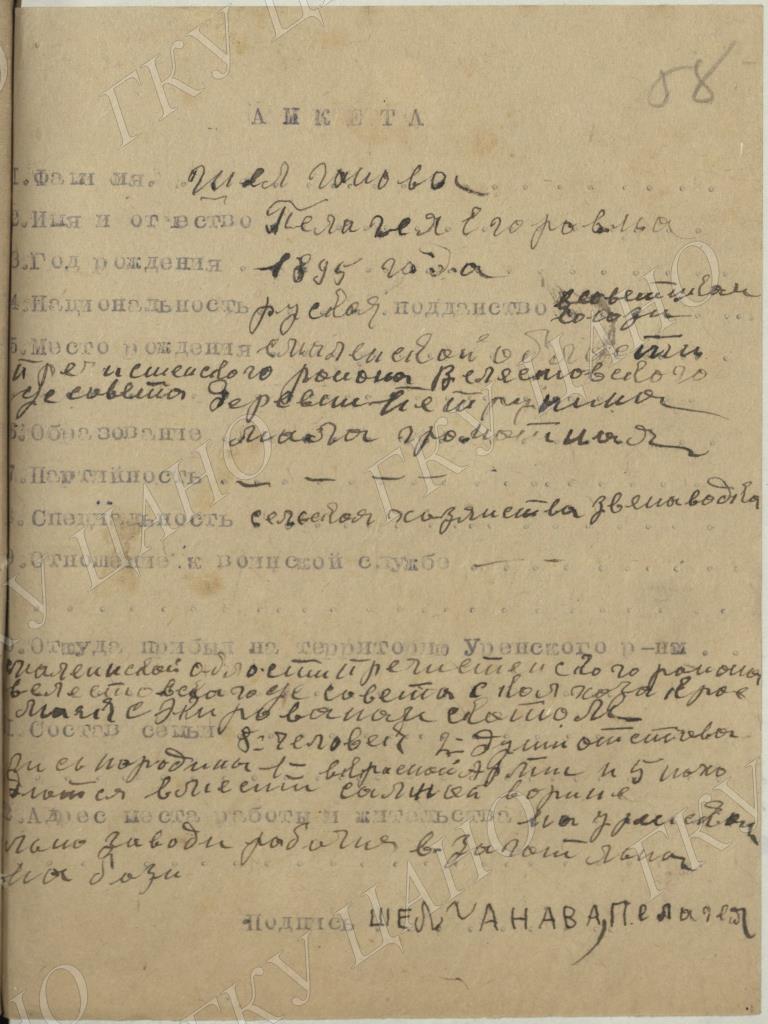 58
АНКЕТА
1. Фамилия. Шелганова
2. Имя и отчество Пелагея Егоровна
3. Год рождения 1895 года
4. Национальность руская подданство советскай
союзи
5. Место рождения смаленской области
Пречистенского района Велестовского
се совета деревни Петрунина
6. Образование мала громотная
7. Партийность — — — —
8. Специальность сельская хозяиства звенаводка
9. Отношение к воинской службе — —
0. Откуда прибыл на территорию Уренского р-на
смаленской области пречистенского района
велестовскаго се совета с колхоза Крас
май с скотом
1. Состав семьи 8-человек 2- души отстова
лись народины 1- вкрасной Армии и 5 нахо
дются вместе
2. Адрес места работы и жительства на
льно заводи рабочия в Заготльна
на бази
Подпись ШЕЛГАНАВА, Пелагея
ГКУ ЦАНО